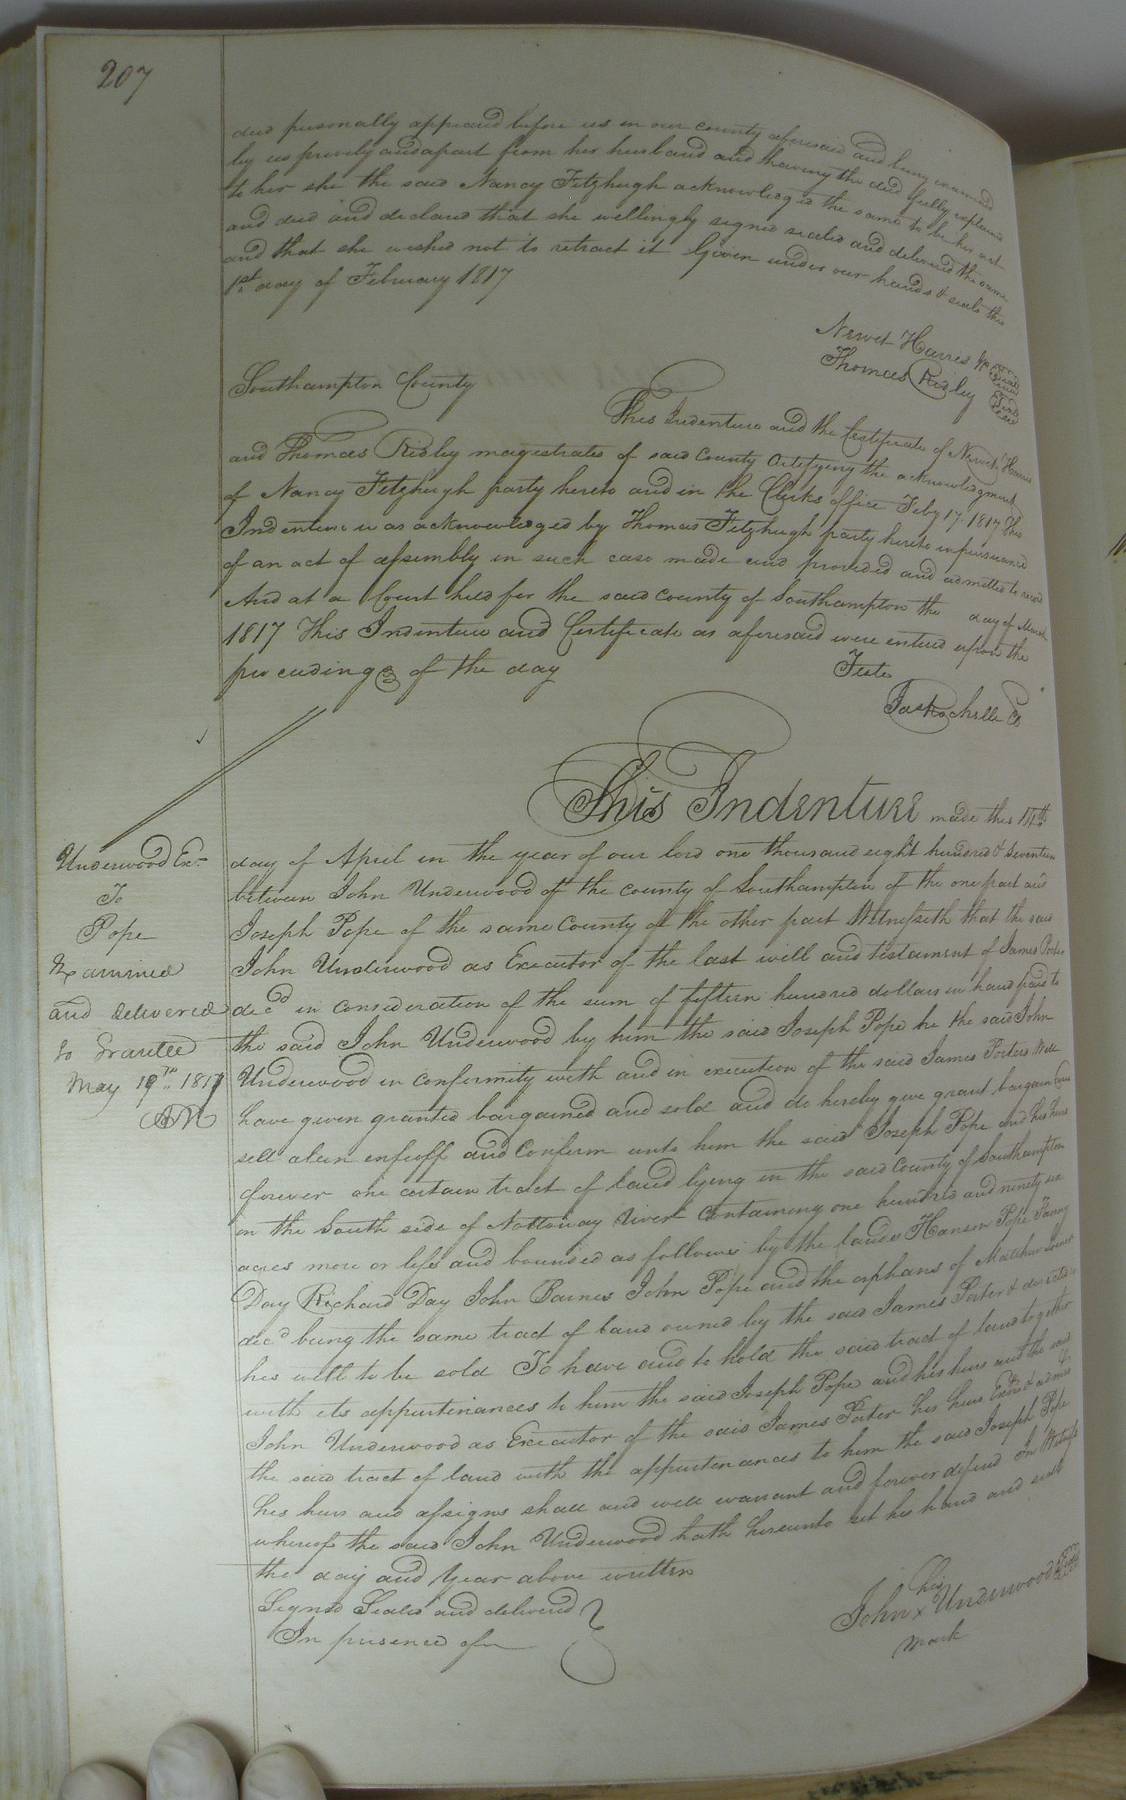 207
deed personally appeared before us in our county aforesaid and being examined
by us privily and apart from her husband and having the deed fully explained
to her she the said Nancy Fitzhugh acknowledged the same to be her act
and deed and declared that she willingly signed sealed and delivered the same
and that she wished not to retract it Given under our hands & seals this
1st day of February 1817
Newit Harris
Thomas Ridley
Southampton County
This Indenture and the Certificate of Newit Harris
and Thomas Ridley magistrates of said County Certifying the acknowledgment
of Nancy Fitzhugh party hereto and in the Clerks office Feby 17. 1817 This
Indenture was acknowledged by Thomas Fitzhugh party hereto in pursuance
of an act of assembly in such case made and provided and admitted to record
And at a Court held for the said County of Southampton the day of March
1817 This Indenture and Certificate as aforesaid were entered upon the
proceedings of the day
Teste
Jas Rochelle Cc
This Indenture made this
Underwood Exr
To
Pope
Examined
and delivered
to Grantee
May 19th 1817
day of April in the year of our lord one thousand eight hundred & seventeen
between John Underwood of the county of Southampton of the one part and
Joseph Pope of the same County of the other part Witnesseth that the said
John Underwood as Executor of the last will and testament of James Porter
decd in consideration of the sum of fifteen hundred dollars in hand paid to
the said John Underwood by him the said Joseph Pope he the said John
Underwood in conformity with and in execution of the said James Porters Will
have given granted bargained and sold and do hereby give grant bargain and
sell alien enfeoff and Confirm unto him the said Joseph Pope and his heirs
forever one certain tract of land lying in the said County of Southampton
on the South side of Nottoway River Containing one hundred and ninety six
acres more or less and bounded as follows by the lands Hanson Pope Fanny
Day Richard Day John Barnes John Pope and the orphans of Matthew
decd being the same tract of land owned by the said James Porter & directed by
his will to be sold To have and to hold the said tract of land together
with its appurtenances to him the said Joseph Pope and his heirs and the said
John Underwood as Executor of the said James Porter his heirs Exrs &
the said tract of land with the appurtenances to him the said Joseph Pope
his heirs and assigns shall and will warrant and forever defend In Witness
whereof the said John Underwood hath hereunto set his hand and seal
the day and Year above written
Signed Sealed and delivered
In presence of
his
John x Underwood
mark